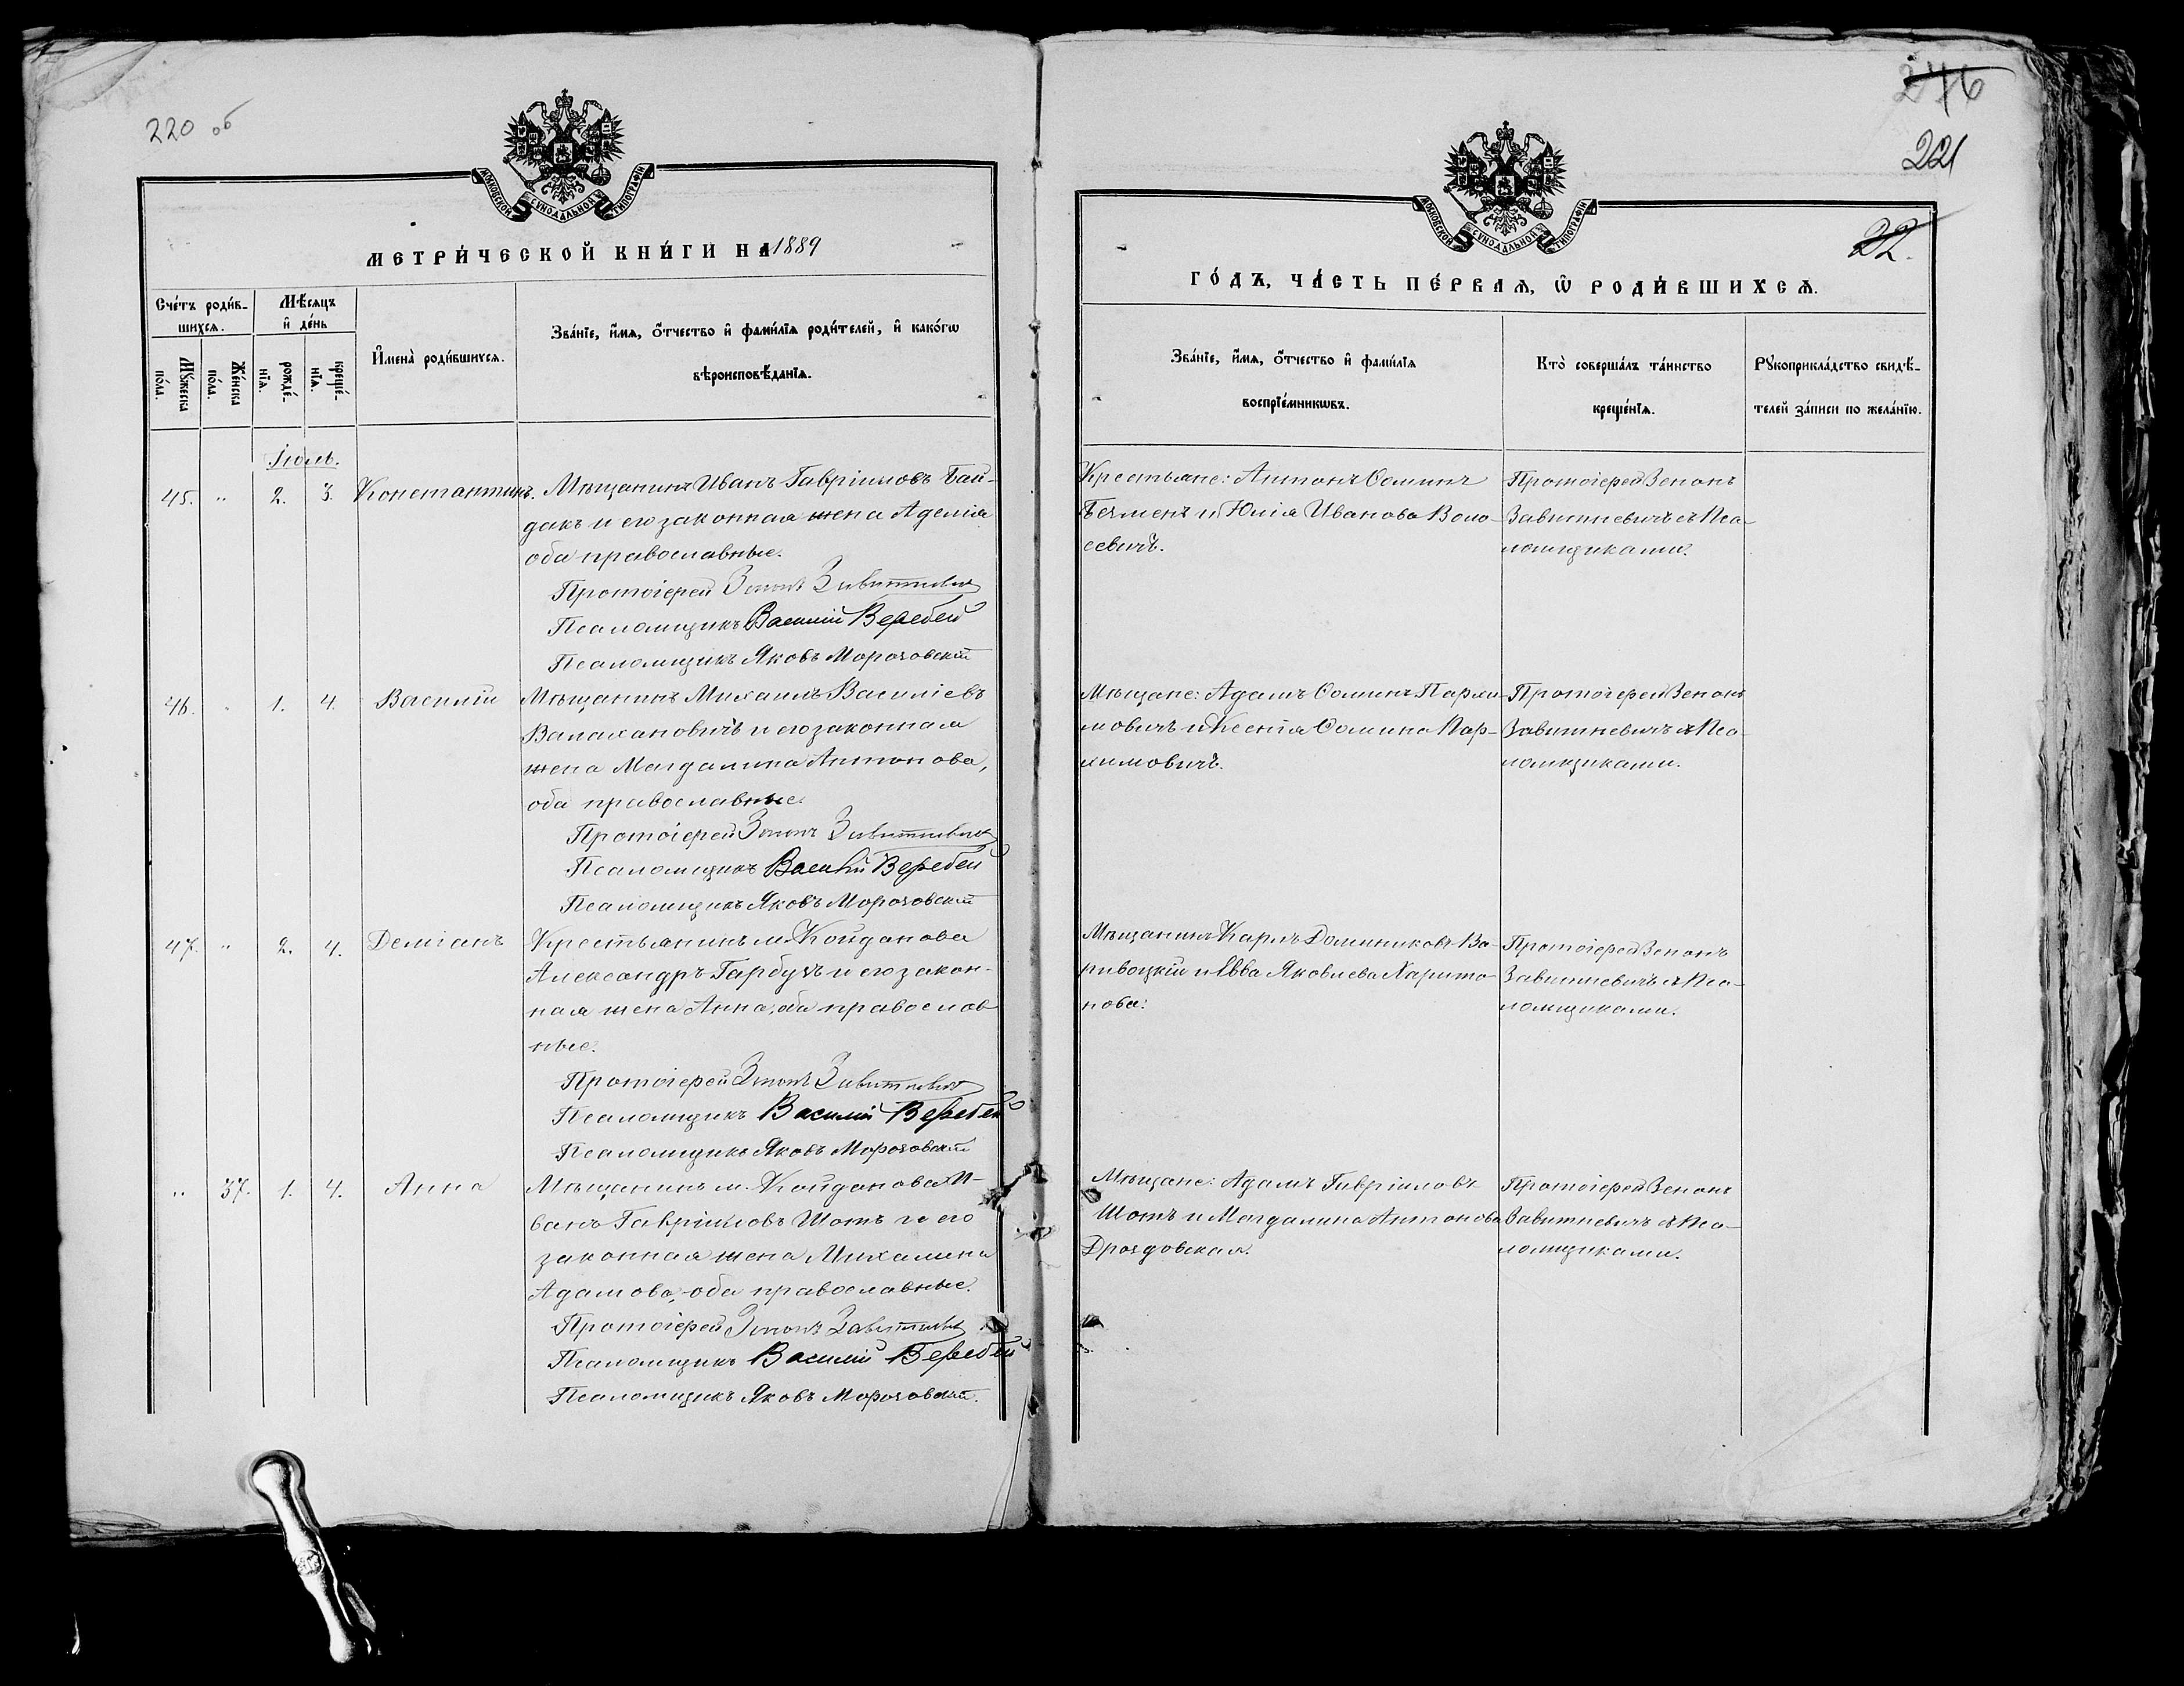 220 об
МОСКОВСКОЙ СѴНОДАЛЬНОЙ ТИПОГРАФІИ
МЕТРИ́ЧЕСКОЙ КНИ́ГИ НА 1889
Сче́тъ роди́в-
шихсѧ.
Мѣ́сѧцъ
и҆ де́нь
Мꙋ́жеска
по́ла.
Же́нска
по́ла.
рожде́-
нїѧ.
креще́-
нїѧ.
И҆мена̀ роди́вшихсѧ.
Зва́нїе, и҆́мѧ, ѻ҆́тчество и҆ фами́лїѧ роди́телей, и҆ како́гѡ
вѣроисповѣ́данїѧ.
Іюль.
45. " 2. 3. Константинъ. Мѣщанинъ Иванъ Гавріиловъ Бай-
дакъ и его законная жена Аделія
оба православные.
Протоіерей Зенонъ Завитневичъ
Псаломщикъ Василій Веребей
Псаломщикъ Яковъ Морозовскій
46. " 1. 4. Василій Мѣщанинъ Михаилъ Василіевъ
Валахановичъ и его законная
жена Магдалина Антонова,
оба православные.
Протоіерей Зенонъ Завитневичъ
Псаломщикъ Василій Веребей
Псаломщикъ Яковъ Морозовскій
47. " 2. 4. Деміанъ Крестьянинъ м. Койданова
Александръ Гарбузъ и его закон-
ная жена Анна, оба православ
ные.
Протоіерей Зенонъ Завитневичъ
Псаломщикъ Василій Веребей
Псаломщикъ Яковъ Морозовскій
" 37. 1. 4. Анна Мѣщанинъ м. Койданова И-
ванъ Гавріиловъ Шотъ и его
законная жена Михалина
Адамова, оба православные.
Протоіерей Зенонъ Завитневичъ
Псаломщикъ Василій Веребей
Псаломщикъ Яковъ Морозовскій.
276
221
22.
МОСКОВСКОЙ СѴНОДАЛЬНОЙ ТИПОГРАФІИ
ГО́ДЪ, ЧА́СТЬ ПЕ́РВАѦ, Ѽ РОДИ́ВШИХСѦ.
Зва́нїе, и҆́мѧ, ѻ҆́тчество и҆ фами́лїѧ
воспрїе́мникѡвъ.
Кто̀ соверша́лъ та́инство
креще́нїѧ.
Рꙋкоприкла́дство свидѣ́-
телей за́писи по жела́нїю.
Крестьяне: Антонъ Ѳоминъ
Бечменъ и Юлія Иванова Воло-
севичъ.
Протоіерей Зенонъ
Завитневичъ съ Пса-
ломщиками.
Мѣщане: Адамъ Ѳоминъ Пархи-
мовичъ и Ксенія Ѳомина Пар-
химовичъ.
Протоіерей Зенонъ
Завитневичъ съ Пса-
ломщиками.
Мѣщанинъ Карлъ Доминиковъ Ва-
ривоцкій и Евва Яковлева Харито-
нова.
Протоіерей Зенонъ
Завитневичъ съ Пса-
ломщиками.
Мѣщане: Адамъ Гавріиловъ
Шотъ и Магдалина Антонова
Дроздовская.
Протоіерей Зенонъ
Завитневичъ съ Пса-
ломщиками.